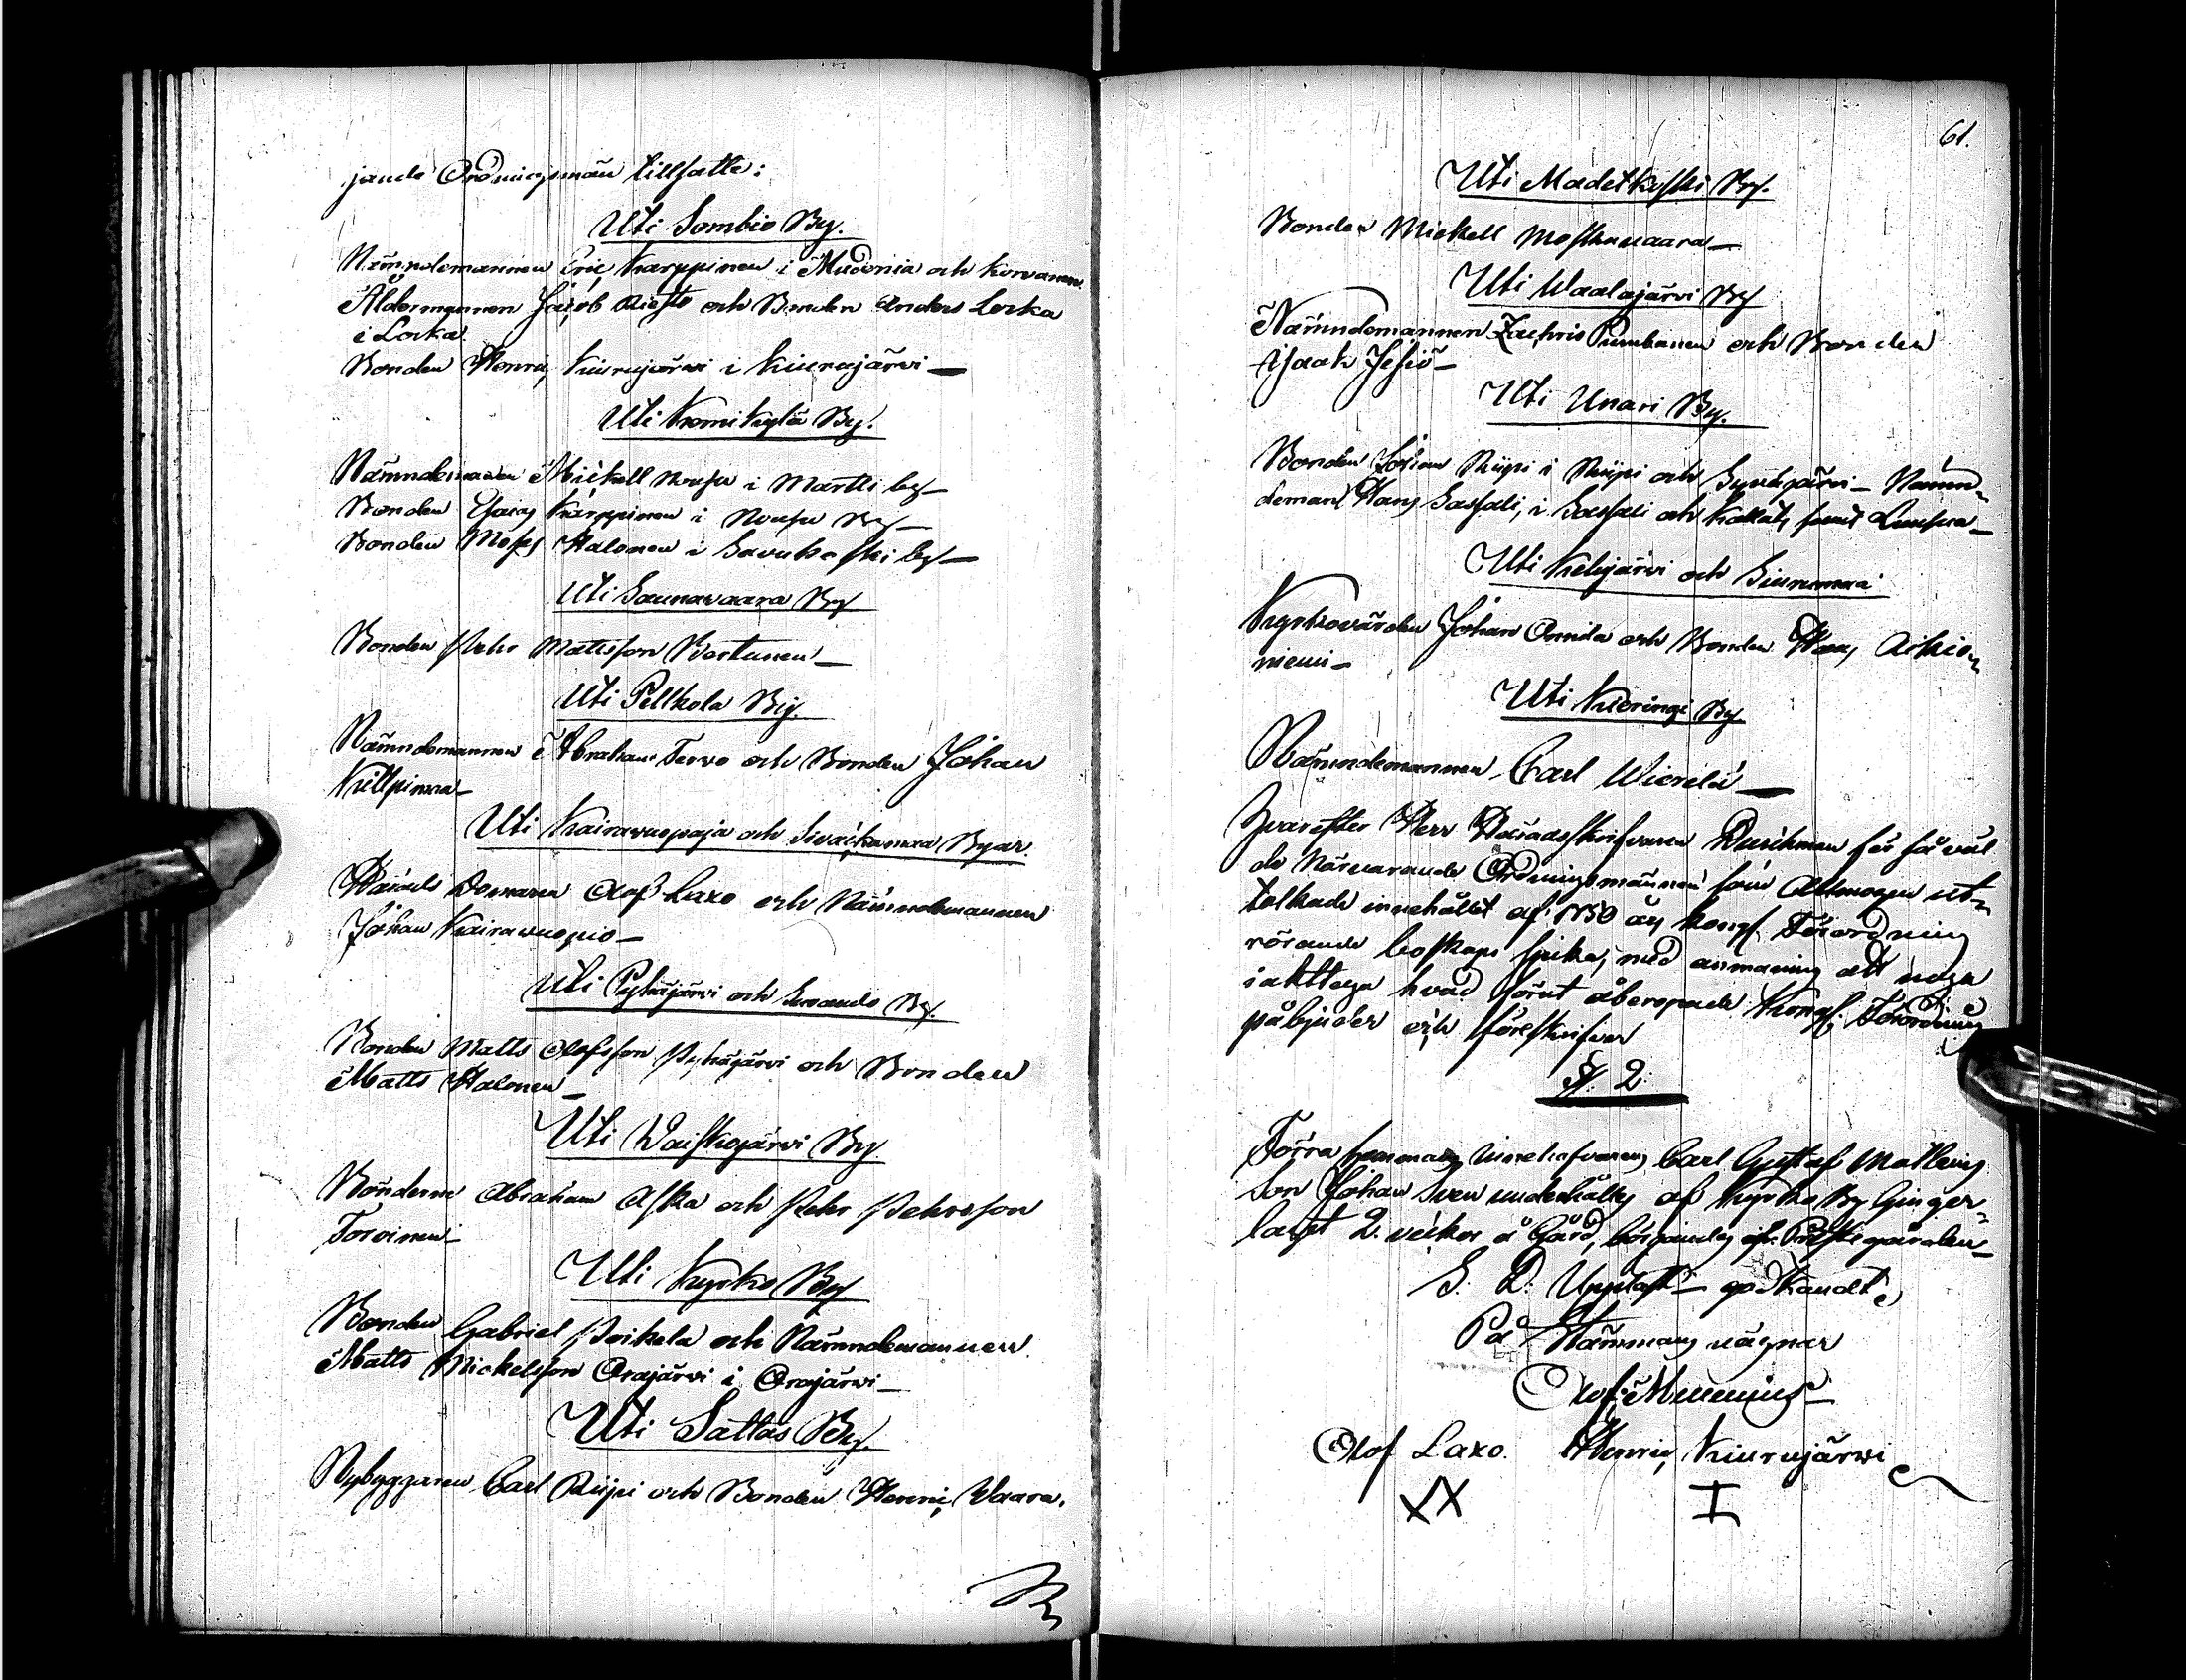 jande Ordningsmän tillsatte:
Uti Sombio By.
Nämndemannen Eric Karppinen i Mudenia och Korvanen.
Åldermannen Jacob Riesto och Bonden Anders Locka
i Locka.
Bonden Henric Kiurujärwi i Kiurujärvi —
Uti Kemikylä By.
Nämndemannen Mickell Rousu i Martti by —
Bonden Esaias Karppinen i Rousu By —
Bonden Moses Halonen i Savukoski by —
Uti Saunavaara By
Bonden Pehr Mattsson Kortunen —
Uti Pelkola By.
Nämndemannen Abraham Tervo och Bonden Johan
Killpimaa —
Uti Kairawuopaja och Sivaikamaa Byar.
Härads Domaren Olof Laxo och Nämndemannen
Johan Kairavuopio —
Uti Pyhäjärvi och Suvando By.
Bonden Matts Olofsson Pyhäjärvi och Bonden
Matts Halonen —
Uti Waiskojärvi By
Bönderne Abraham Aska och Pehr Pehrsson
Torvinen —
Uti Kyrko By
Bonden Gabriel Peikela och Nämndemannen
Matts Mickelsson Orajärvi i Orajärwi —
Uti Sattas By.
Nybyggaren Carl Riipi och Bonden Henric Waara.
61.
Uti Madetkoski By.
Bonden Mickell Moskuvaara —
Uti Waalajärvi By
Nämndemannen Zachris Pumbanen och Bonden
Isaak Jesiö —
Uti Unari By.
Bonden Johan Riipi i Riipi och Syväjärvi — Nämn-
deman Hans Sassali, i Sassali och samt Luusua —
Uti Kelujärvi och Siurunmaa
Kyrkovärden Johan Onnila och Bonden Hans Arkio-
niemi —
Uti Kieringi By
Nämndemannen Carl Wierelä —
Hvarefter Herr Häradsskrifvaren för så väl
de Närvarande Ordningsmännen som Allmogen ut-
tolkade innehållet af 1750 års Kongl. Förordning
rörande boskaps sjuka, med anmaning att noga
iakttaga hvad förut åberopade Kongl. Förordning
påbjuder och föreskrifver
§. 2.
Förra hemmans innehafvarens Carl Gustaf Mattleins
Son Johan Sven underhålles af Kyrko By Ginger-
laget 2. veckor å Gård, börjandes ifr. Prestegården —
S. D. Uppläst — godkändt,
På Stämmans vägnar
Olof Mennius —
Olof Laxo. Henric Kiurujärwi
XX I